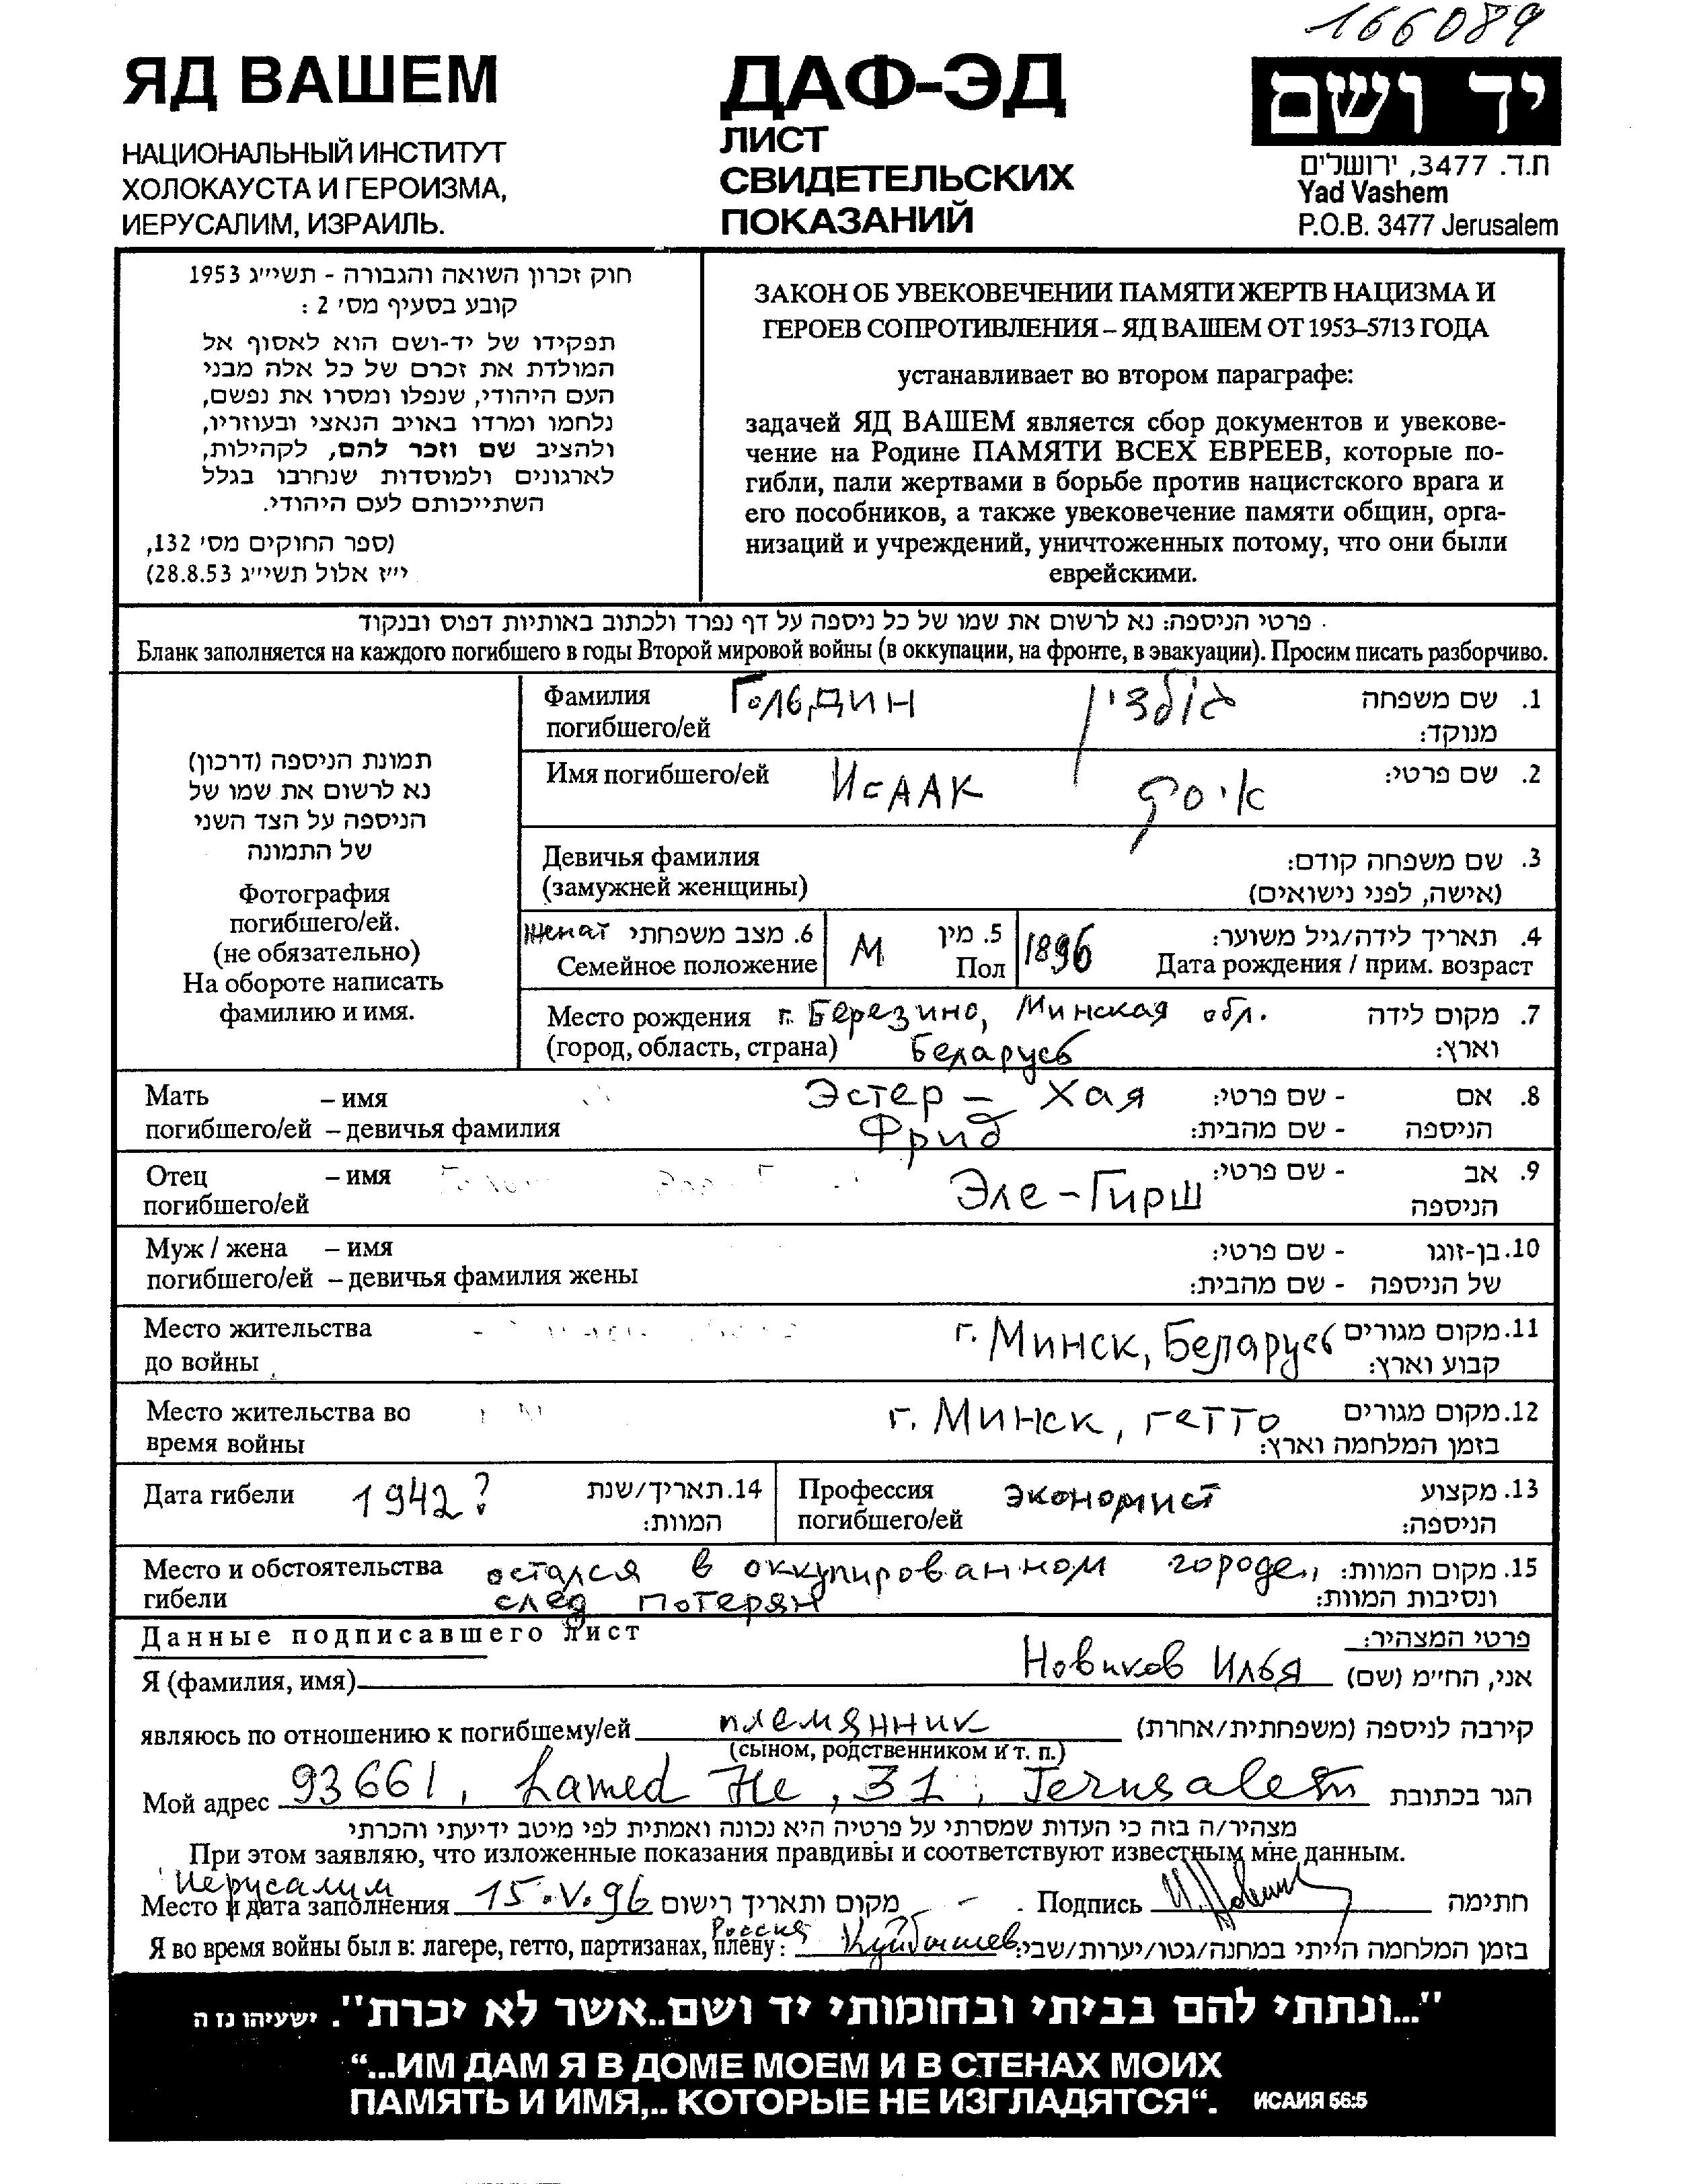 166089
ЯД ВАШЕМ
НАЦИОНАЛЬНЫЙ ИНСТИТУТ
ХОЛОКАУСТА И ГЕРОИЗМА,
ИЕРУСАЛИМ, ИЗРАИЛЬ.
ДАФ-ЭД
ЛИСТ
СВИДЕТЕЛЬСКИХ
ПОКАЗАНИЙ
יד ושם
ת.ד. 3477, ירושלים
Yad Vashem
P.O.B. 3477 Jerusalem
חוק זכרון השואה והגבורה - תשי״ג 1953
קובע בסעיף מס׳ 2 :
תפקידו של יד-ושם הוא לאסוף אל
המולדת את זכרם של כל אלה מבני
העם היהודי, שנפלו ומסרו את נפשם,
נלחמו ומרדו באויב הנאצי ובעוזריו,
ולהציב שם וזכר להם, לקהילות,
לארגונים ולמוסדות שנחרבו בגלל
השתייכותם לעם היהודי.
(ספר החוקים מס׳ 132,
י״ז אלול תשי״ג 28.8.53)
ЗАКОН ОБ УВЕКОВЕЧЕНИИ ПАМЯТИ ЖЕРТВ НАЦИЗМА И
ГЕРОЕВ СОПРОТИВЛЕНИЯ – ЯД ВАШЕМ ОТ 1953–5713 ГОДА
устанавливает во втором параграфе:
задачей ЯД ВАШЕМ является сбор документов и увекове-
чение на Родине ПАМЯТИ ВСЕХ ЕВРЕЕВ, которые по-
гибли, пали жертвами в борьбе против нацистского врага и
его пособников, а также увековечение памяти общин, орга-
низаций и учреждений, уничтоженных потому, что они были
еврейскими.
פרטי הניספה: נא לרשום את שמו של כל ניספה על דף נפרד ולכתוב באותיות דפוס ובנקוד
Бланк заполняется на каждого погибшего в годы Второй мировой войны (в оккупации, на фронте, в эвакуации). Просим писать разборчиво.
תמונת הניספה (דרכון)
נא לרשום את שמו של
הניספה על הצד השני
של התמונה
Фотография
погибшего/ей.
(не обязательно)
На обороте написать
фамилию и имя.
Фамилия Гольдин גולדין 1. שם משפחה
погибшего/ей מנוקד:
Имя погибшего/ей Исаак 2. שם פרטי:
Девичья фамилия 3. שם משפחה קודם:
(замужней женщины) (אישה, לפני נישואים)
женат 6. מצב משפחתי М 5. מין 1896 4. תאריך לידה/גיל משוער:
Семейное положение Пол Дата рождения / прим. возраст
Место рождения г. Березино, Минская обл. 7. מקום לידה
(город, область, страна) Беларусь וארץ:
Мать – имя Эстер – Хая - שם פרטי: 8. אם
погибшего/ей – девичья фамилия Фрид - שם מהבית: הניספה
Отец – имя Эле-Гирш - שם פרטי: 9. אב
погибшего/ей הניספה
Муж / жена – имя - שם פרטי: 10. בן-זוגו
погибшего/ей – девичья фамилия жены - שם מהבית: של הניספה
Место жительства г. Минск, Беларусь 11. מקום מגורים
до войны קבוע וארץ:
Место жительства во г. Минск, гетто 12. מקום מגורים
время войны בזמן המלחמה וארץ:
Дата гибели 1942? 14. תאריך/שנת Профессия экономист 13. מקצוע
המוות: погибшего/ей הניספה:
Место и обстоятельства остался в оккупированном городе, 15. מקום המוות:
гибели след потерян ונסיבות המוות:
Данные подписавшего лист פרטי המצהיר:
Я (фамилия, имя) Новиков Илья אני, הח״מ (שם)
являюсь по отношению к погибшему/ей племянник קירבה לניספה (משפחתית/אחרת)
(сыном, родственником и т. п.)
Мой адрес 93661, Lamed He, 31, Jerusalem הגר בכתובת
מצהיר/ה בזה כי העדות שמסרתי על פרטיה היא נכונה ואמתית לפי מיטב ידיעתי והכרתי
При этом заявляю, что изложенные показания правдивы и соответствуют известным мне данным.
Иерусалим
Место и дата заполнения 15.V.96 מקום ותאריך רישום Подпись חתימה
Россия
Я во время войны был в: лагере, гетто, партизанах, плену: Куйбышев בזמן המלחמה הייתי במחנה/גטו/יערות/שבי:
"...ונתתי להם בביתי ובחומותי יד ושם..אשר לא יכרת". ישעיהו נז ה
“...ИМ ДАМ Я В ДОМЕ МОЕМ И В СТЕНАХ МОИХ
ПАМЯТЬ И ИМЯ,.. КОТОРЫЕ НЕ ИЗГЛАДЯТСЯ“. ИСАИЯ 56:5